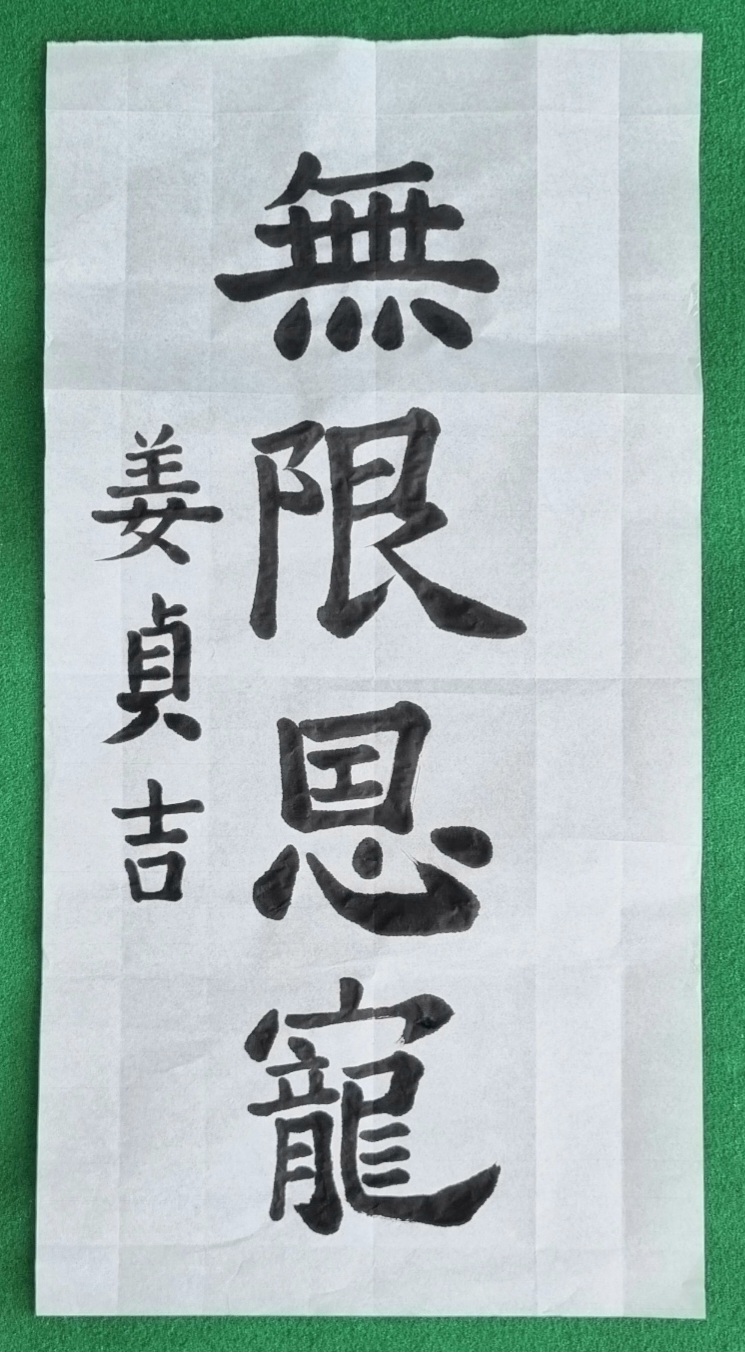 無限恩寵
姜貞吉